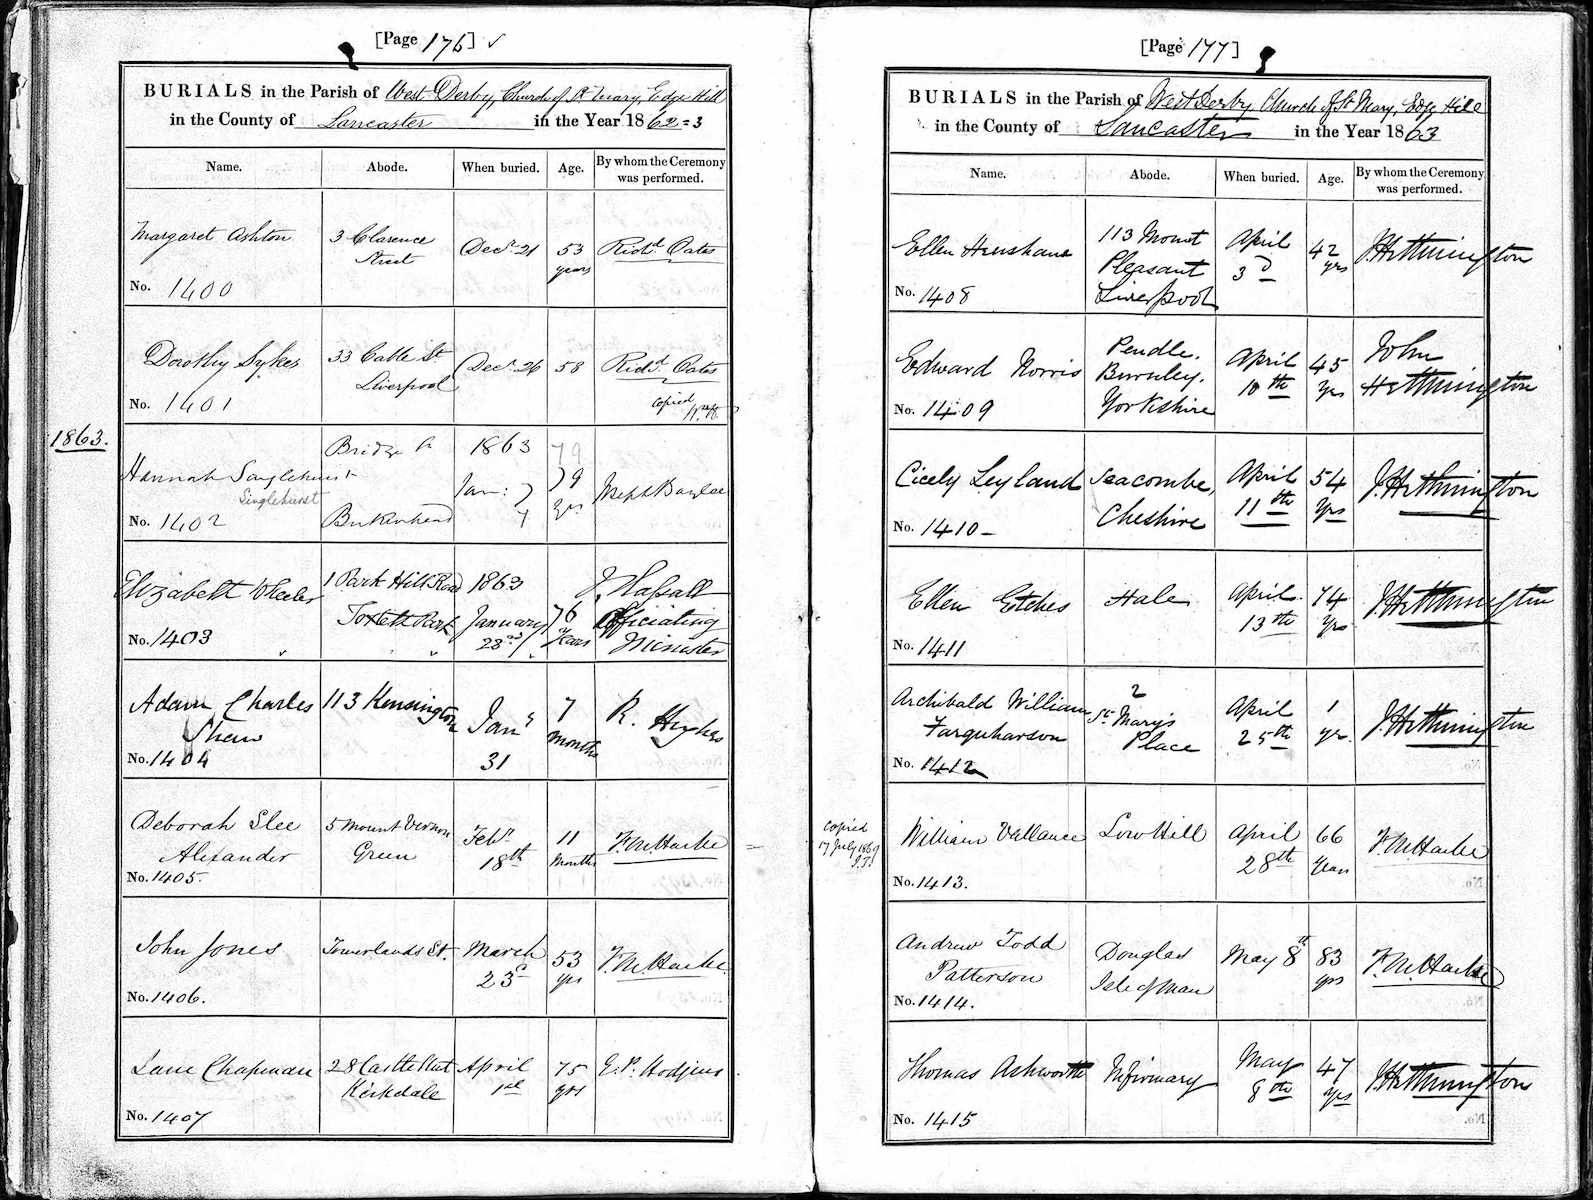 [Page 176]
BURIALS in the Parish of West Derby, Church of St Mary, Edge Hill
in the County of Lancaster in the Year 1862=3
Name. Abode. When buried. Age. By whom the Ceremony was performed.
Margaret Ashton
No. 1400
3 Clarence
Street
Decr 21
53
years
Richd. Oates
Dorothy Sykes
No. 1401
33 Cable St
Liverpool
Decr 26
58
Richd. Oates
copied
1863.
Hannah Singlehurst
Singlehurst
No. 1402
Bridge St
Birkenhead
1863
Jan: 7
79
79
yrs
Joseph Baylee
Elizabeth Wheeler
No. 1403
1 Park Hill Road
Toxteth Park
1863
January
23rd
76
Years
J. Hassall
Officiating
Minister
Adam Charles
Shaw
No. 1404
113 Kensington
Jany
31
7
months
R. Hughes
Deborah Slee
Alexander
No. 1405.
5 Mount Vernon
Green
Feby
18th
11
Months
John Jones
No. 1406.
Towerlands St.
March
23d
53
yrs
Jane Chapman
No. 1407
28 Castle
Kirkdale
April
1st
75
yrs
[Page 177]
BURIALS in the Parish of West Derby Church of St Mary, Edge Hill
in the County of Lancaster in the Year 1863
Name. Abode. When buried. Age. By whom the Ceremony was performed.
Ellen Henshaw
No. 1408
113 Mount
Pleasant
Liverpool
April
3d
42
yrs
J. Hethrington
Edward Norris
No. 1409
Pendle.
Burnley.
Yorkshire
April
10th
45
Yrs
John
Hethrington
Cicely Leyland
No. 1410-
Seacombe,
Cheshire
April
11th
54
Yrs
J. Hethrington
Ellen Etches
No. 1411
Hale
April
13th
74
Yrs
J. Hethrington
Archibald William
Farquharson
No. 1412
2
St. Mary's
Place
April
25th
1
yr.
J. Hethrington
copied
17 July 1869
J.T.
William Vallance
No. 1413.
Low Hill
April
28th
66
Years
Andrew Todd
Patterson
No. 1414.
Douglas
Isle of Man
May 8th
83
yrs
Thomas Ashworth
No. 1415
Infirmary
May
8th
47
Yrs
J. Hethrington